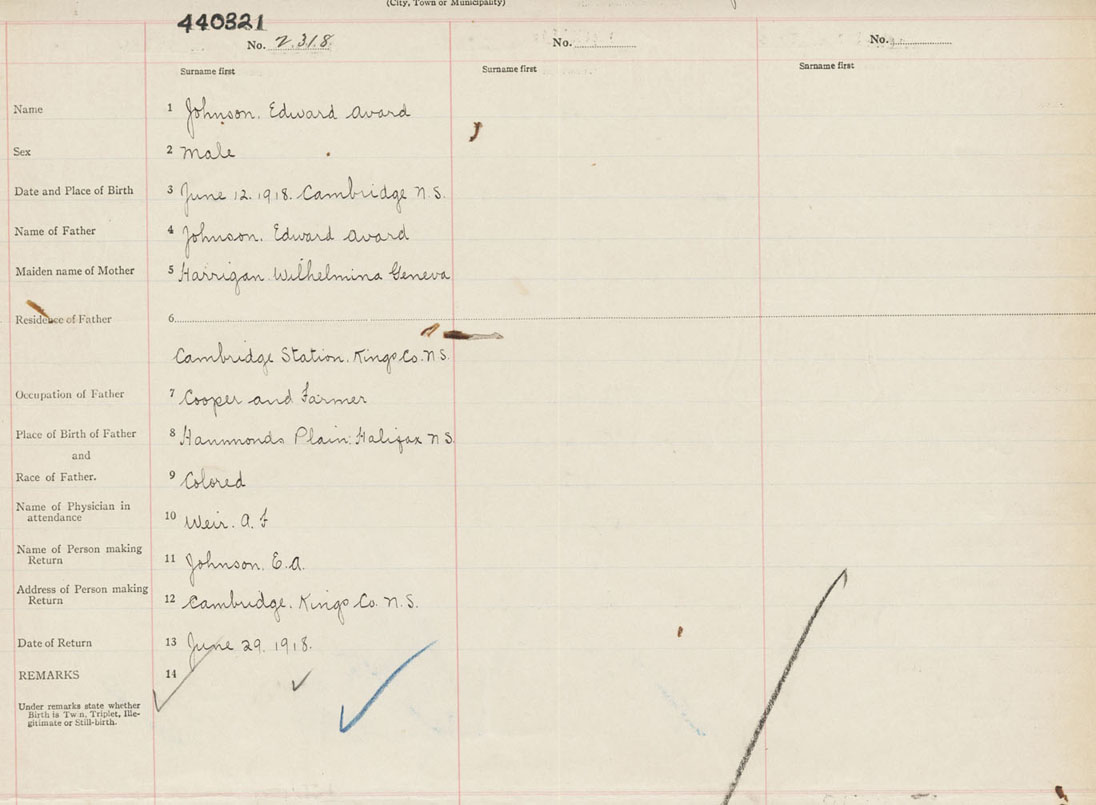 (City, Town or Municipality)
440321
No. 2.318
No.
No.
Surname first
Surname first
Surname first
Name 1 Johnson. Edward Avard
Sex 2 Male
Date and Place of Birth 3 June 12. 1918. Cambridge N.S.
Name of Father 4 Johnson. Edward Avard
Maiden name of Mother 5 Harrigan. Wilhelmina Geneva
Residence of Father 6
Cambridge Station. Kings Co. N.S.
Occupation of Father 7 Cooper and Farmer
Place of Birth of Father 8 Hammonds Plain. Halifax N.S.
and
Race of Father. 9 Colored
Name of Physician in
attendance 10 Weir. A. F
Name of Person making
Return 11 Johnson. E.A.
Address of Person making
Return 12 Cambridge. Kings Co. N.S.
Date of Return 13 June 29. 1918.
REMARKS 14
Under remarks state whether
Birth is Twin, Triplet, Ille-
gitimate or Still-birth.